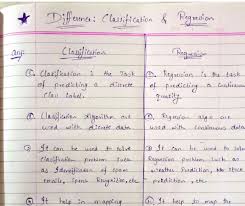 Difference: Classification & Regression
Ans:
Classification
① Classification is the Task
of predicting a discrete
class label.
② Classification algorithm are
used with discrete data
③ It can be used to solve
Classification problem such
as Identification of spam
emails, Speech Recognition, etc
④ It help in mapping
Regression
① Regression is the task
of predicting a continuous
quantity.
② Regression algo are
used with continuous data
③ It can be used to solve
Regression problem, such as
weather prediction,
prediction, etc.
④ It help to map the